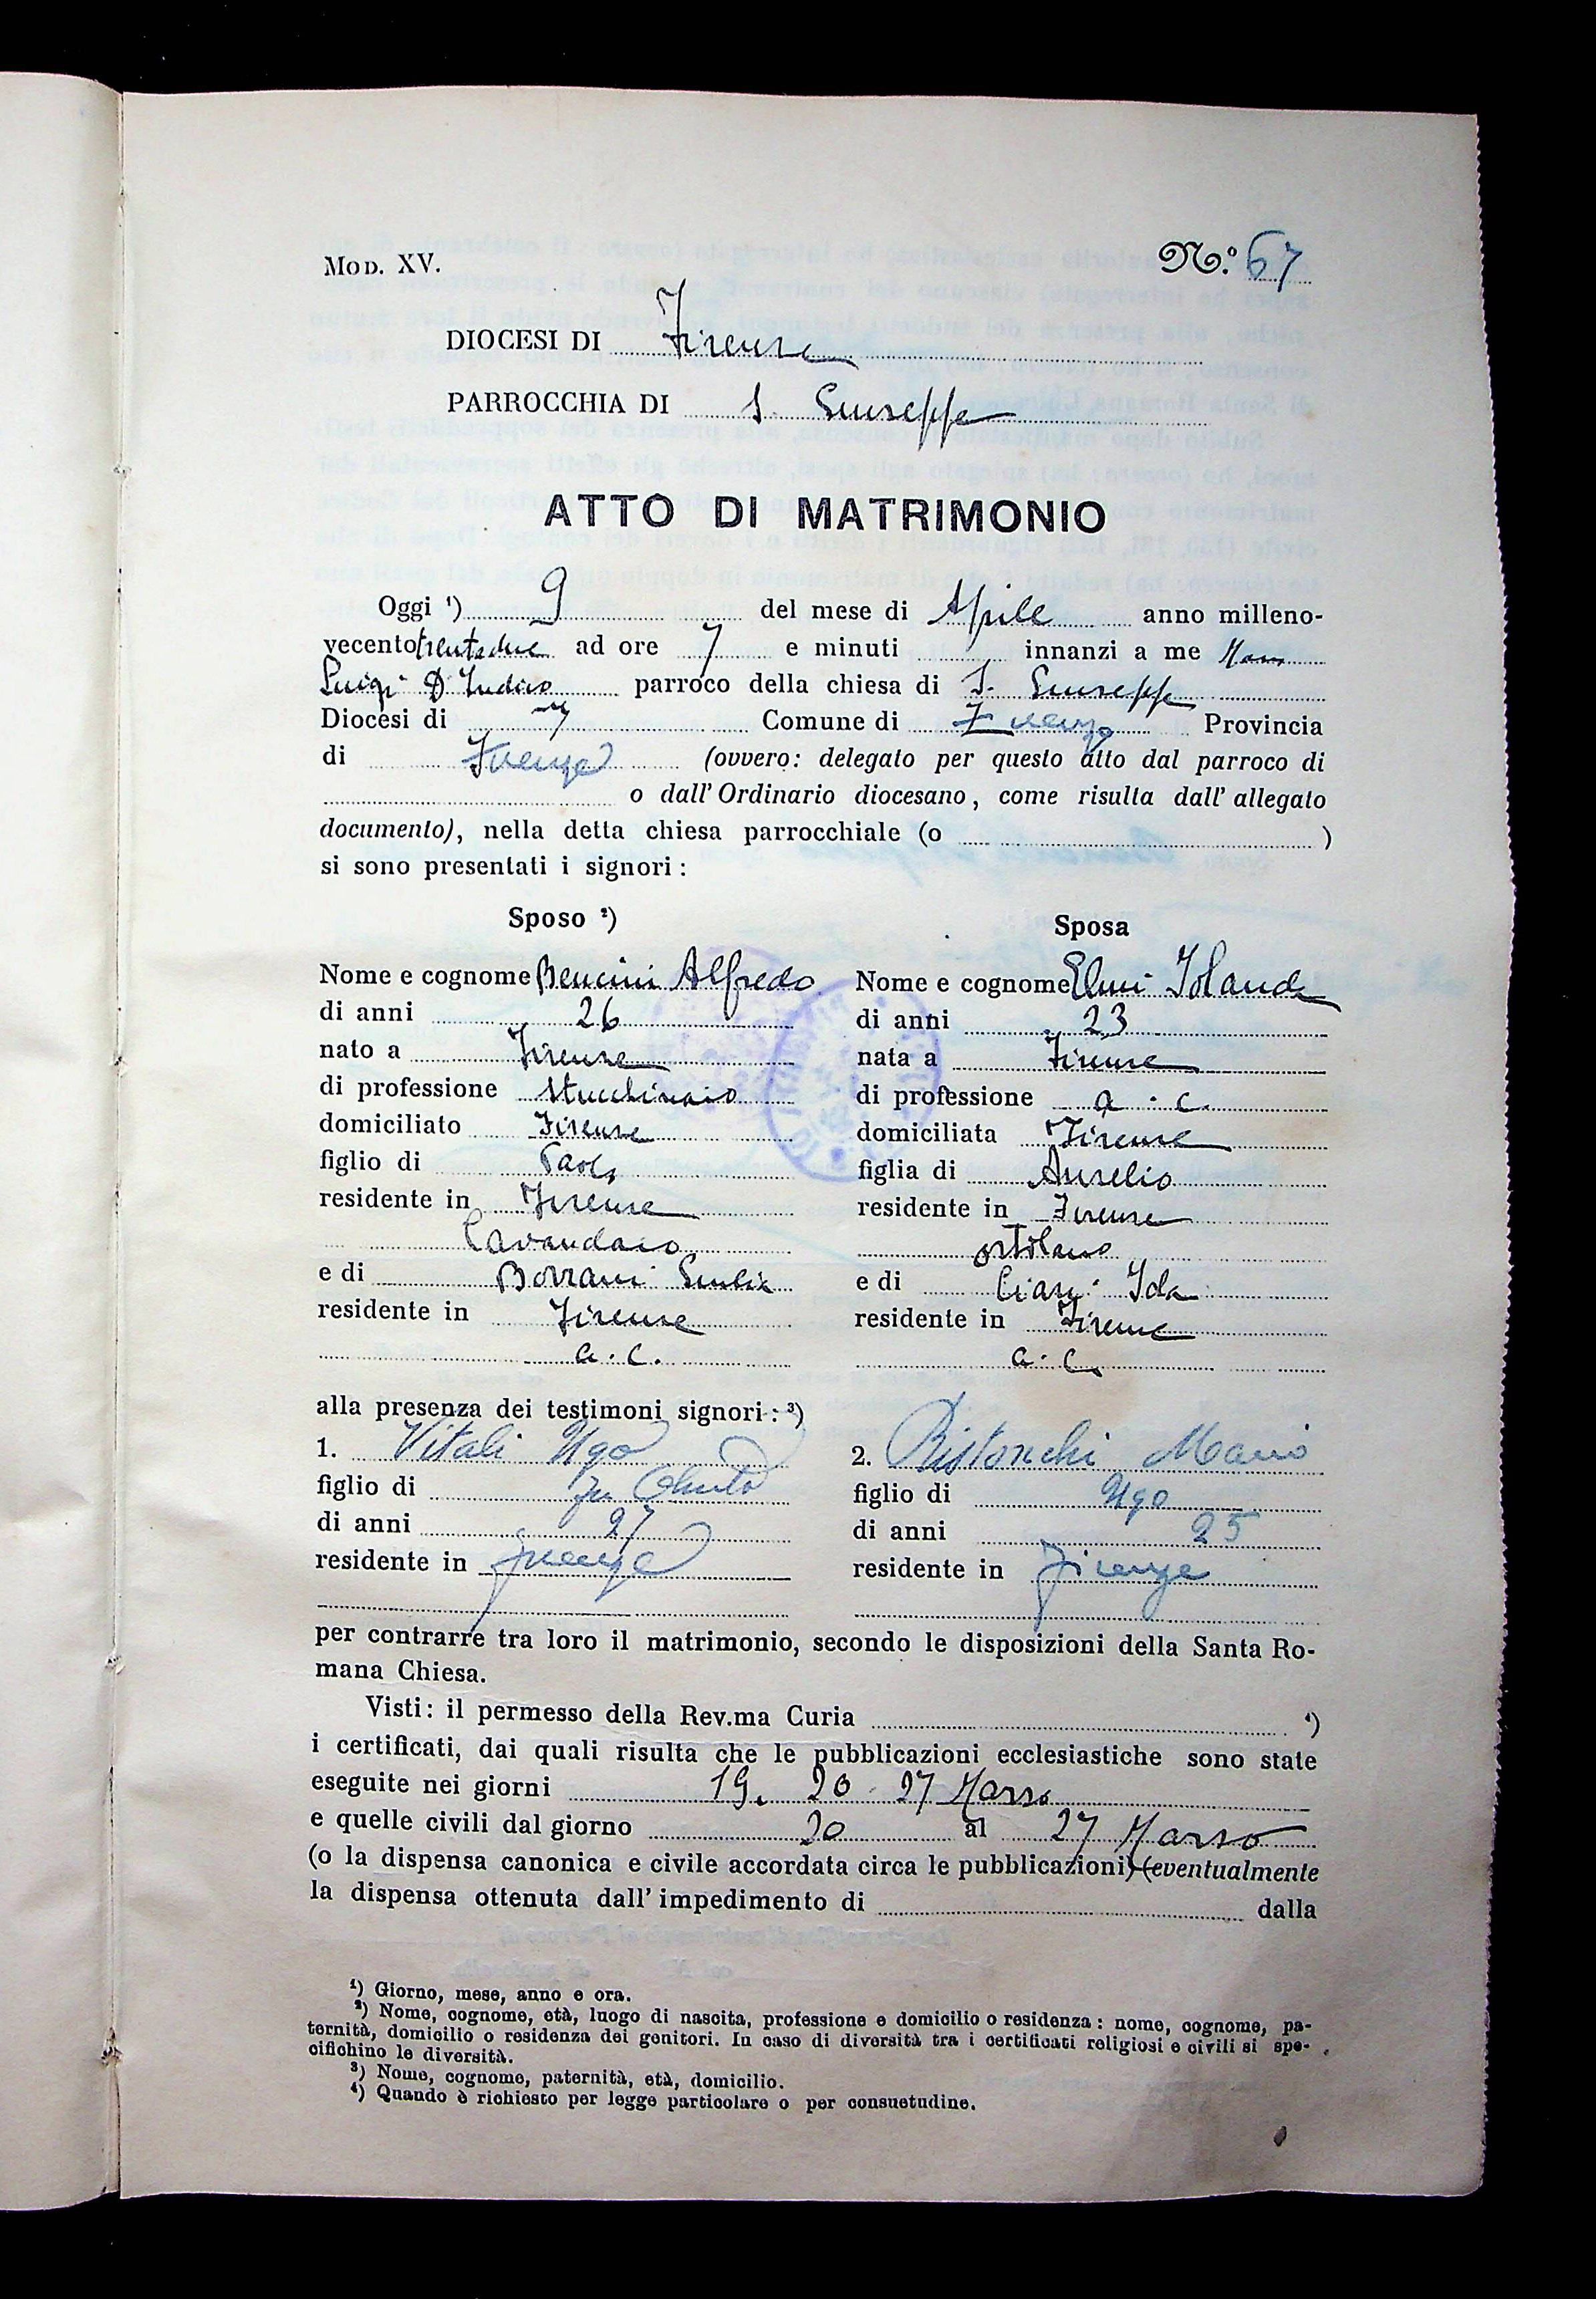 Mod. XV.
N.º 67
DIOCESI DI Firenze
PARROCCHIA DI S. Giuseppe
ATTO DI MATRIMONIO
Oggi ¹) 9 del mese di Aprile anno milleno-
vecento trentadue ad ore 7 e minuti innanzi a me Mons
Luigi D'Indico parroco della chiesa di S. Giuseppe
Diocesi di Comune di Firenze Provincia
di Firenze (ovvero: delegato per questo atto dal parroco di
o dall' Ordinario diocesano, come risulta dall' allegato
documento), nella detta chiesa parrocchiale (o )
si sono presentati i signori :
Sposo ²)
Nome e cognome Bencini Alfredo
di anni 26
nato a Firenze
di professione stucchinaio
domiciliato Firenze
figlio di Paolo
residente in Firenze
Lavandaio
e di Borrani Giulia
residente in Firenze
a. c.
Sposa
Nome e cognome Elmi Iolanda
di anni 23
nata a Firenze
di professione a. c.
domiciliata Firenze
figlia di Aurelio
residente in Firenze
ortolano
e di Ciari Ida
residente in Firenze
a. c.
alla presenza dei testimoni signori : ³)
1. Vitali Ugo
figlio di fu
di anni 27
residente in Firenze
2. Ristonchi Mario
figlio di Ugo
di anni 25
residente in Firenze
per contrarre tra loro il matrimonio, secondo le disposizioni della Santa Ro-
mana Chiesa.
Visti : il permesso della Rev.ma Curia ⁴)
i certificati, dai quali risulta che le pubblicazioni ecclesiastiche sono state
eseguite nei giorni 19. 20 27 Marzo
e quelle civili dal giorno 20 al 27 Marzo
(o la dispensa canonica e civile accordata circa le pubblicazioni) (eventualmente
la dispensa ottenuta dall' impedimento di dalla
¹) Giorno, mese, anno e ora.
²) Nome, cognome, età, luogo di nascita, professione e domicilio o residenza : nome, cognome, pa-
ternità, domicilio o residenza dei genitori. In caso di diversità tra i certificati religiosi e civili si spe-
cifichino le diversità.
³) Nome, cognome, paternità, età, domicilio.
⁴) Quando è richiesto per legge particolare o per consuetudine.